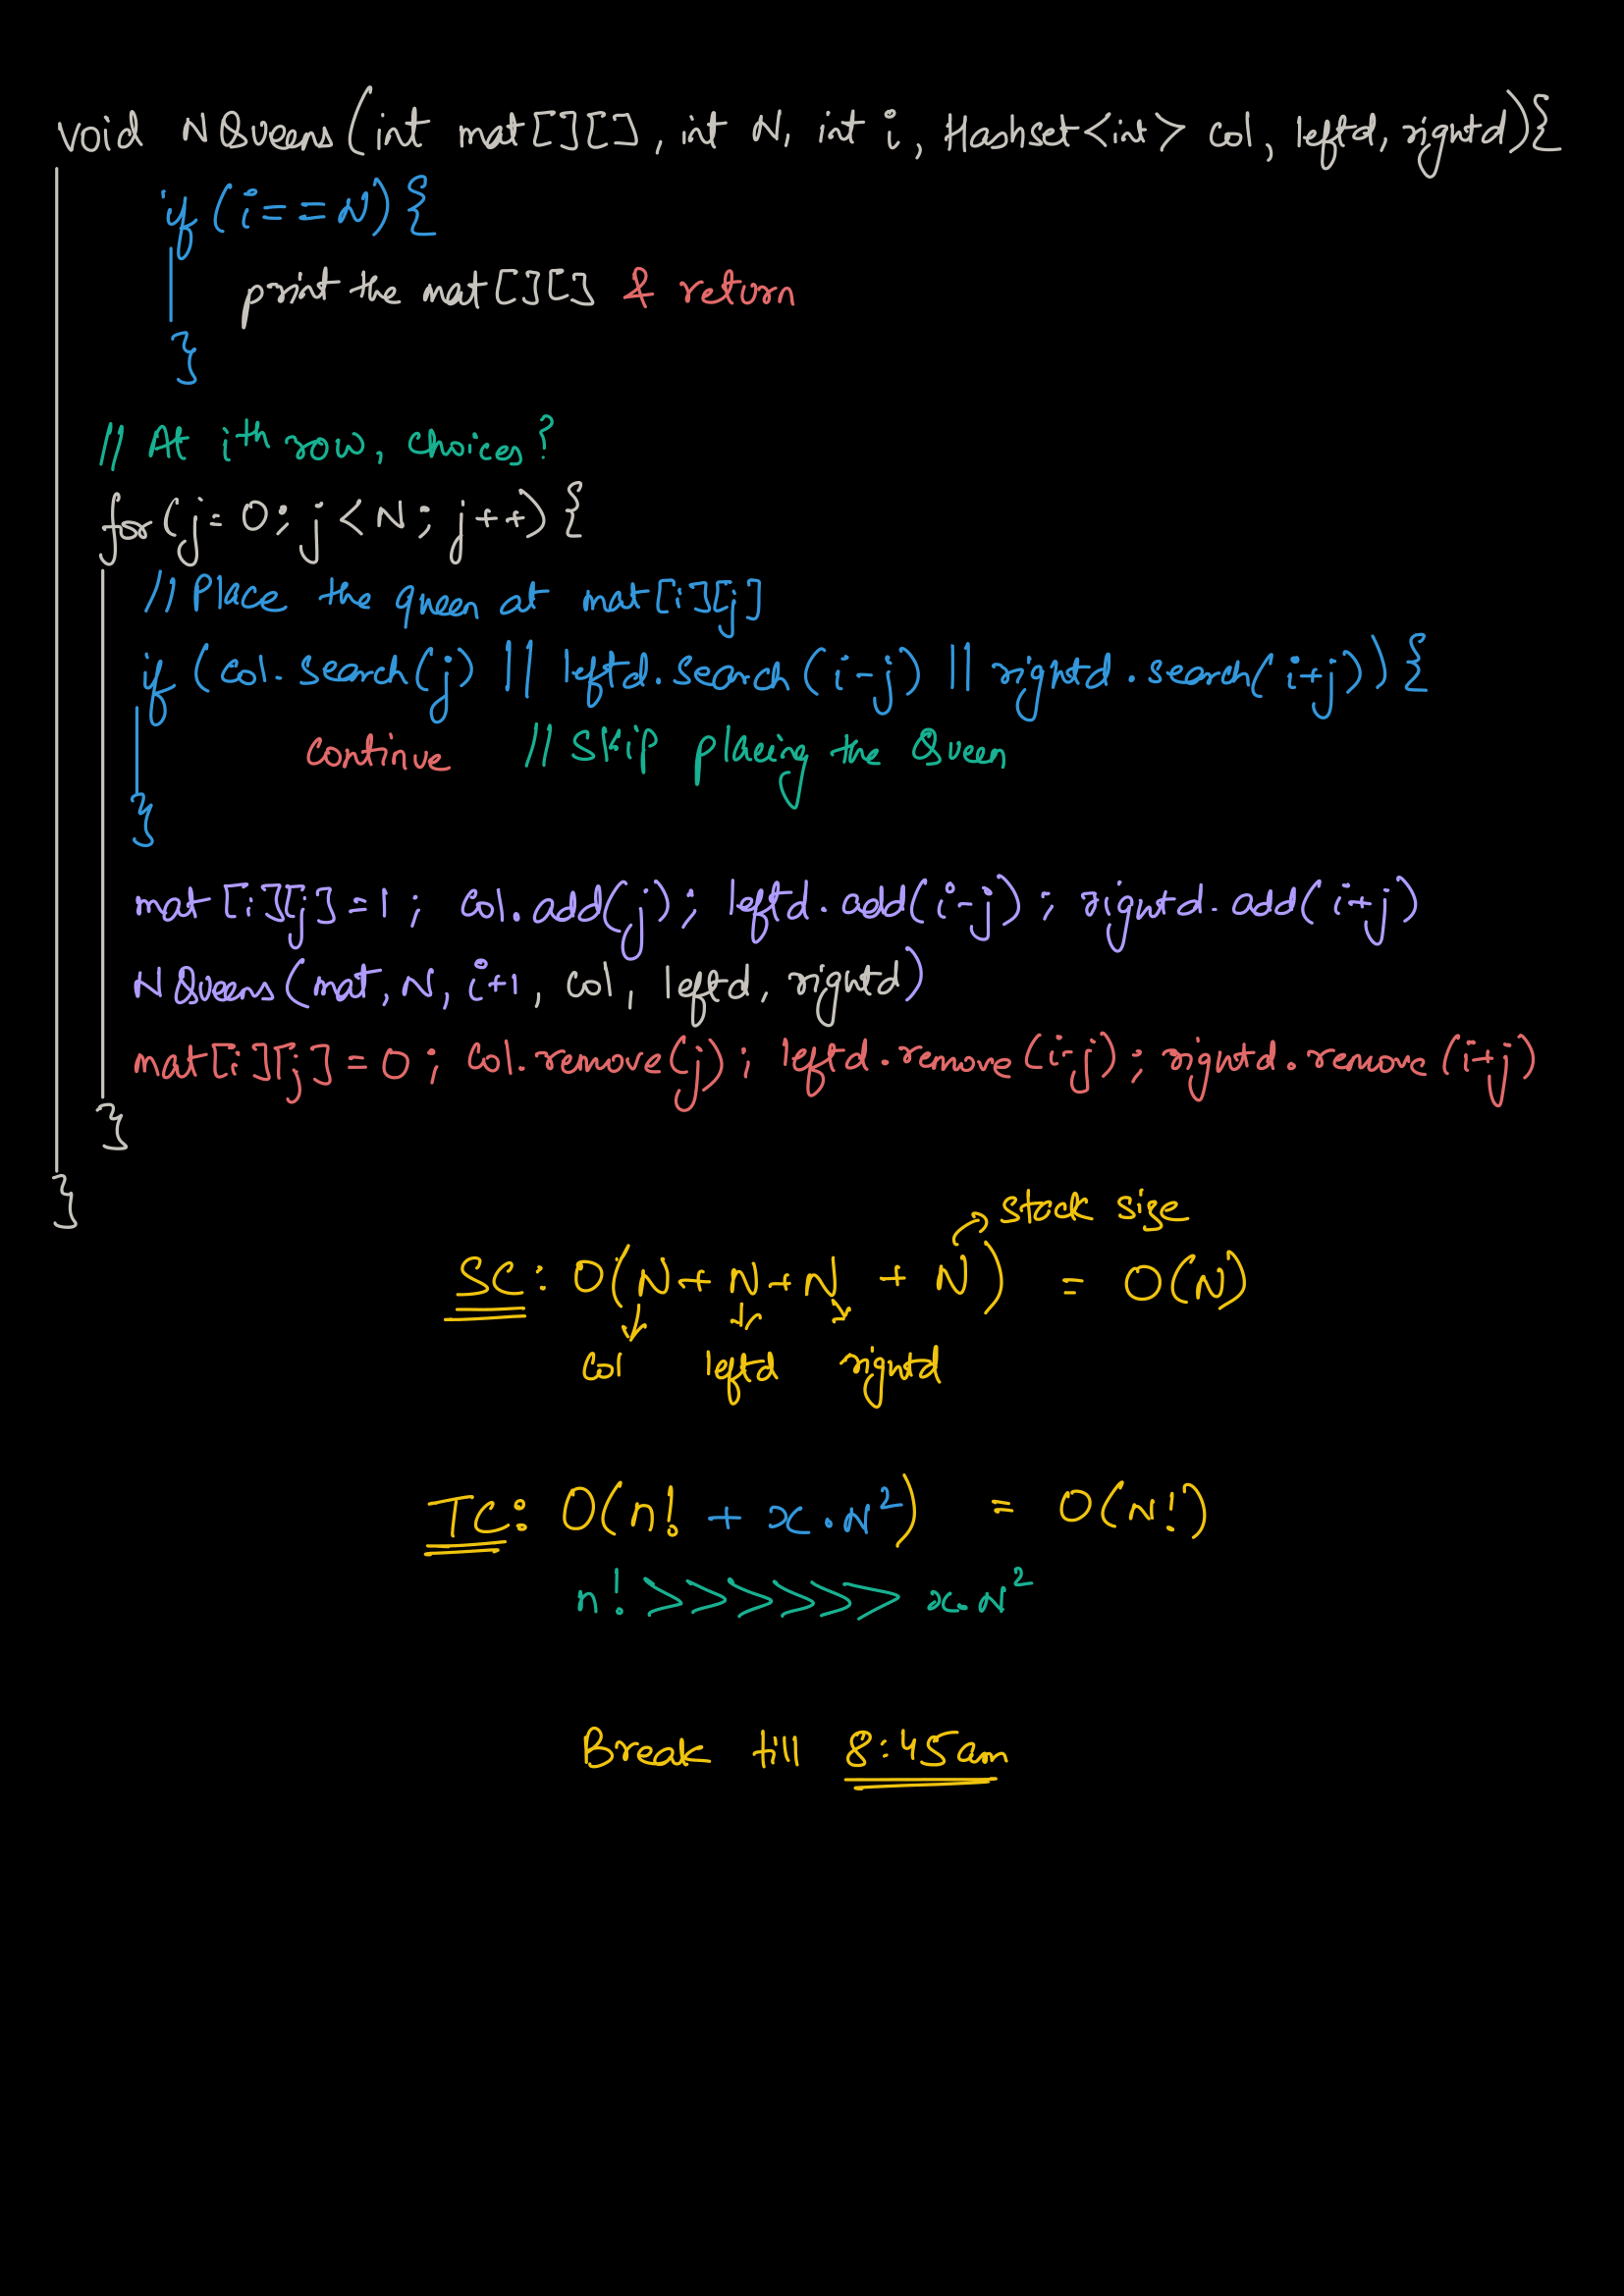 void NQueens(int mat[][], int N, int i, Hashset<int> col, leftd, rightd){
if (i==N){
print the mat[][] & return
}
// At ith row, choices?
for(j=0; j<N; j++){
// Place the queen at mat[i][j]
if (col.search(j) || leftd.search(i-j) || rightd.search(i+j)){
continue // Skip placing the Queen
}
mat[i][j]=1; col.add(j); leftd.add(i-j); rightd.add(i+j)
NQueens(mat, N, i+1, col, leftd, rightd)
mat[i][j]=0; col.remove(j); leftd.remove(i-j); rightd.remove(i+j)
}
}
stack size
SC: O(N+N+N + N) = O(N)
col leftd rightd
TC: O(n! + x.N²) = O(N!)
n! >>>>>> x.N²
Break till 8:45am